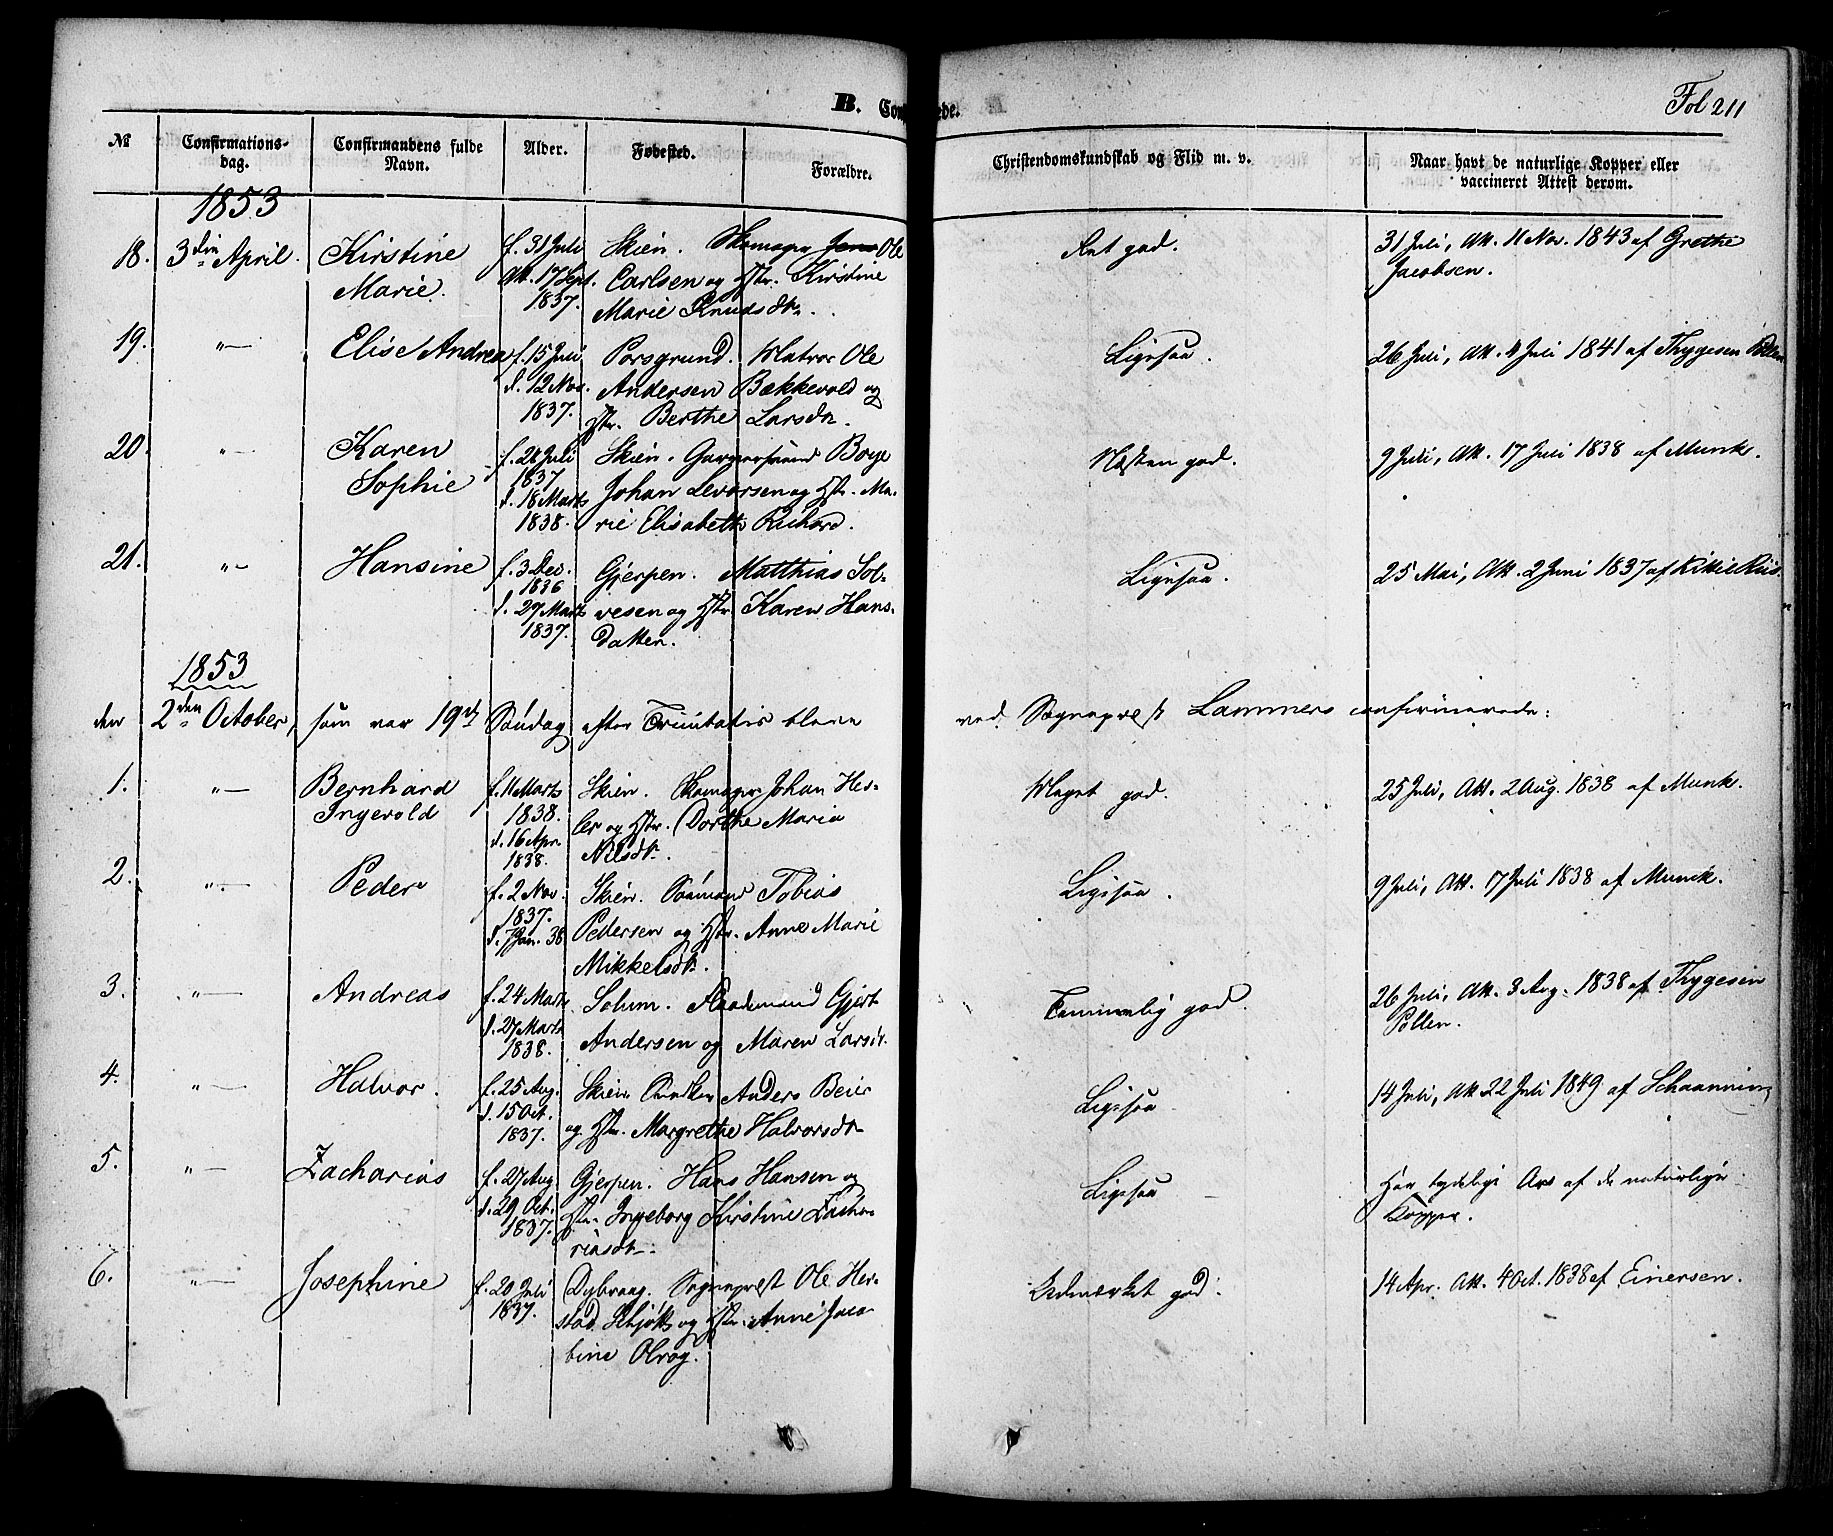 B. Conf
ede.
Fol 211
№
Confirmations-
dag.
Confirmandens fulde
Navn.
Alder.
Fødested.
Forældre.
Christendomskundskab og Flid m. v.
Naar havt de naturlige Kopper eller
vaccineret Attest derom.
1853
18. 3die April. Kirstine f. 31 Juli Skien. Skomager Ole
Marie. 17 Sept. Carlsen og Hstr. Kirstine
1837. Marie Knudsdtr.
Ret god.
31 Juli, Att. 11 Nov. 1843 af Grethe
Jacobsen.
19. "— Elise Andrea f. 15 Juli Porsgrund. Matros Ole
d. 12 Nov. Andersen Bækkevold og
1837. Hstr. Berthe Larsdtr.
Ligesaa.
26 Juli, Att. 4 Juli 1841 af Thygesen Pollen
20. "— Karen f. 28 Juli Skien. Garversvend Borge
Sophie 1837 Johan Levorsen og Hstr. Ma-
d. 18 Marts
1838. rie Elisabeth Richard.
Næsten god.
9 Juli, Att. 17 Juli 1838 af Munk.
21. "— Hansine f. 3 Dec. Gjerpen. Matthias Sol-
1836
d. 27 Marts vesen og Hstr. Karen Hans-
1837. datter.
Ligesaa.
25 Mai, Att. 2 Juni 1837 af Riis.
1853
den 2den October, som var 19de Søndag efter Trinitatis bleve
ved Sognepræst Lammers confirmerede:
1. "— Bernhard f. 11 Marts Skien. Skomager Johan Hes-
Ingevold 1838. ler og Hstr. Dorthe Maria
d. 16 Apr.
1838. Nilsdtr.
Meget god.
25 Juli, Att. 2 Aug. 1838 af Munk.
2. "— Peder f. 2 Nov. Skien. Sømand Tobias
1837. Pedersen og Hstr. Anne Marie
d. 7 Jan. 38 Mikkelsdtr.
Ligesaa.
9 Juli, Att. 17 Juli 1838 af Munck.
3. "— Andreas f. 24 Marts Solum. Gjert
d. 27 Marts
1838. Andersen og Maren Larsdtr.
Temmelig god.
26 Juli, Att. 3 Aug. 1838 af Thygesen
Pollen.
4. "— Halvor. f. 25 Aug. Skien. Anders Beier
d. 15 Oct.
1837. og Hstr. Margrethe Halvorsdtr
Ligesaa
14 Juli, Att. 22 Juli 1849 af Schaanning
5. "— Zacharias f. 27 Aug. Gjerpen. Hans Hansen og
d. 29 Oct. Hstr. Ingeborg Kirstine Zacha-
1837. riasdtr.
Ligesaa
Har tydelige Ars af de naturlige
Kopper.
6. "— Josephine f. 20 Juli Dybvaag. Sognepræst Ole Her-
1837. stad Schjøtt og Hstr. Anne Jaco-
bine Olrog.
Udmærket god.
14 Apr. Att. 4 Oct. 1838 af Einersen.